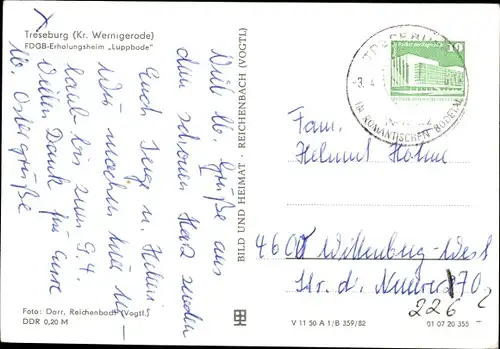 Treseburg (Kr. Wernigerode)
FDGB-Erholungsheim „Luppbode"
Viele lb. Grüße aus
dem schönen Harz senden
Euch Inge u. Helmi
Wir machen hier Ur-
laub bis zum 9.4.
Vielen Dank für Eure
lb. Ostergrüße
Foto: Darr, Reichenbach (Vogtl.)
DDR 0,20 M
BILD UND HEIMAT · REICHENBACH (VOGTL)
TRESEBURG
-3. 4.
IM ROMANTISCHEN BODETAL
10
Fam.
Helmut Hohne
4600 Wittenberg-West
Str. d. Neuerer 170
226
V 11 50 A 1/B 359/82
01 07 20 355